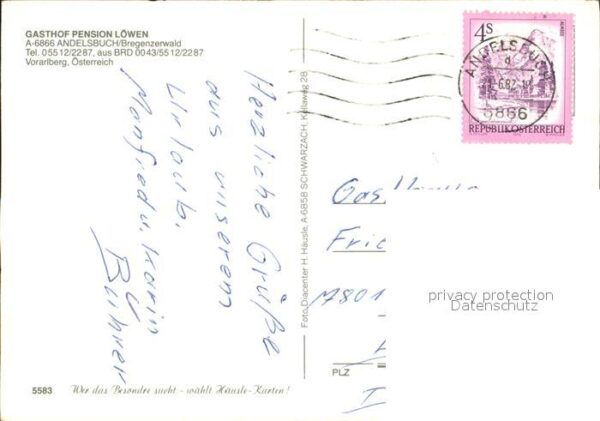 GASTHOF PENSION LÖWEN
A-6866 ANDELSBUCH/Bregenzerwald
Tel. 05512/2287, aus BRD 0043/5512/2287
Vorarlberg, Österreich
Herzliche Grüße
aus unserem
Urlaub.
Manfred u. Karin
Bührer
5583
Wer das Besondre sucht - wählt Häusle-Karten!
Foto Diacenter H. Häusle, A-6858 SCHWARZACH, Kellaweg 28
4S
ANDELSBUCH
6866
REPUBLIK ÖSTERREICH
Gasthaus
Fri
7801
PLZ
privacy protection
Datenschutz